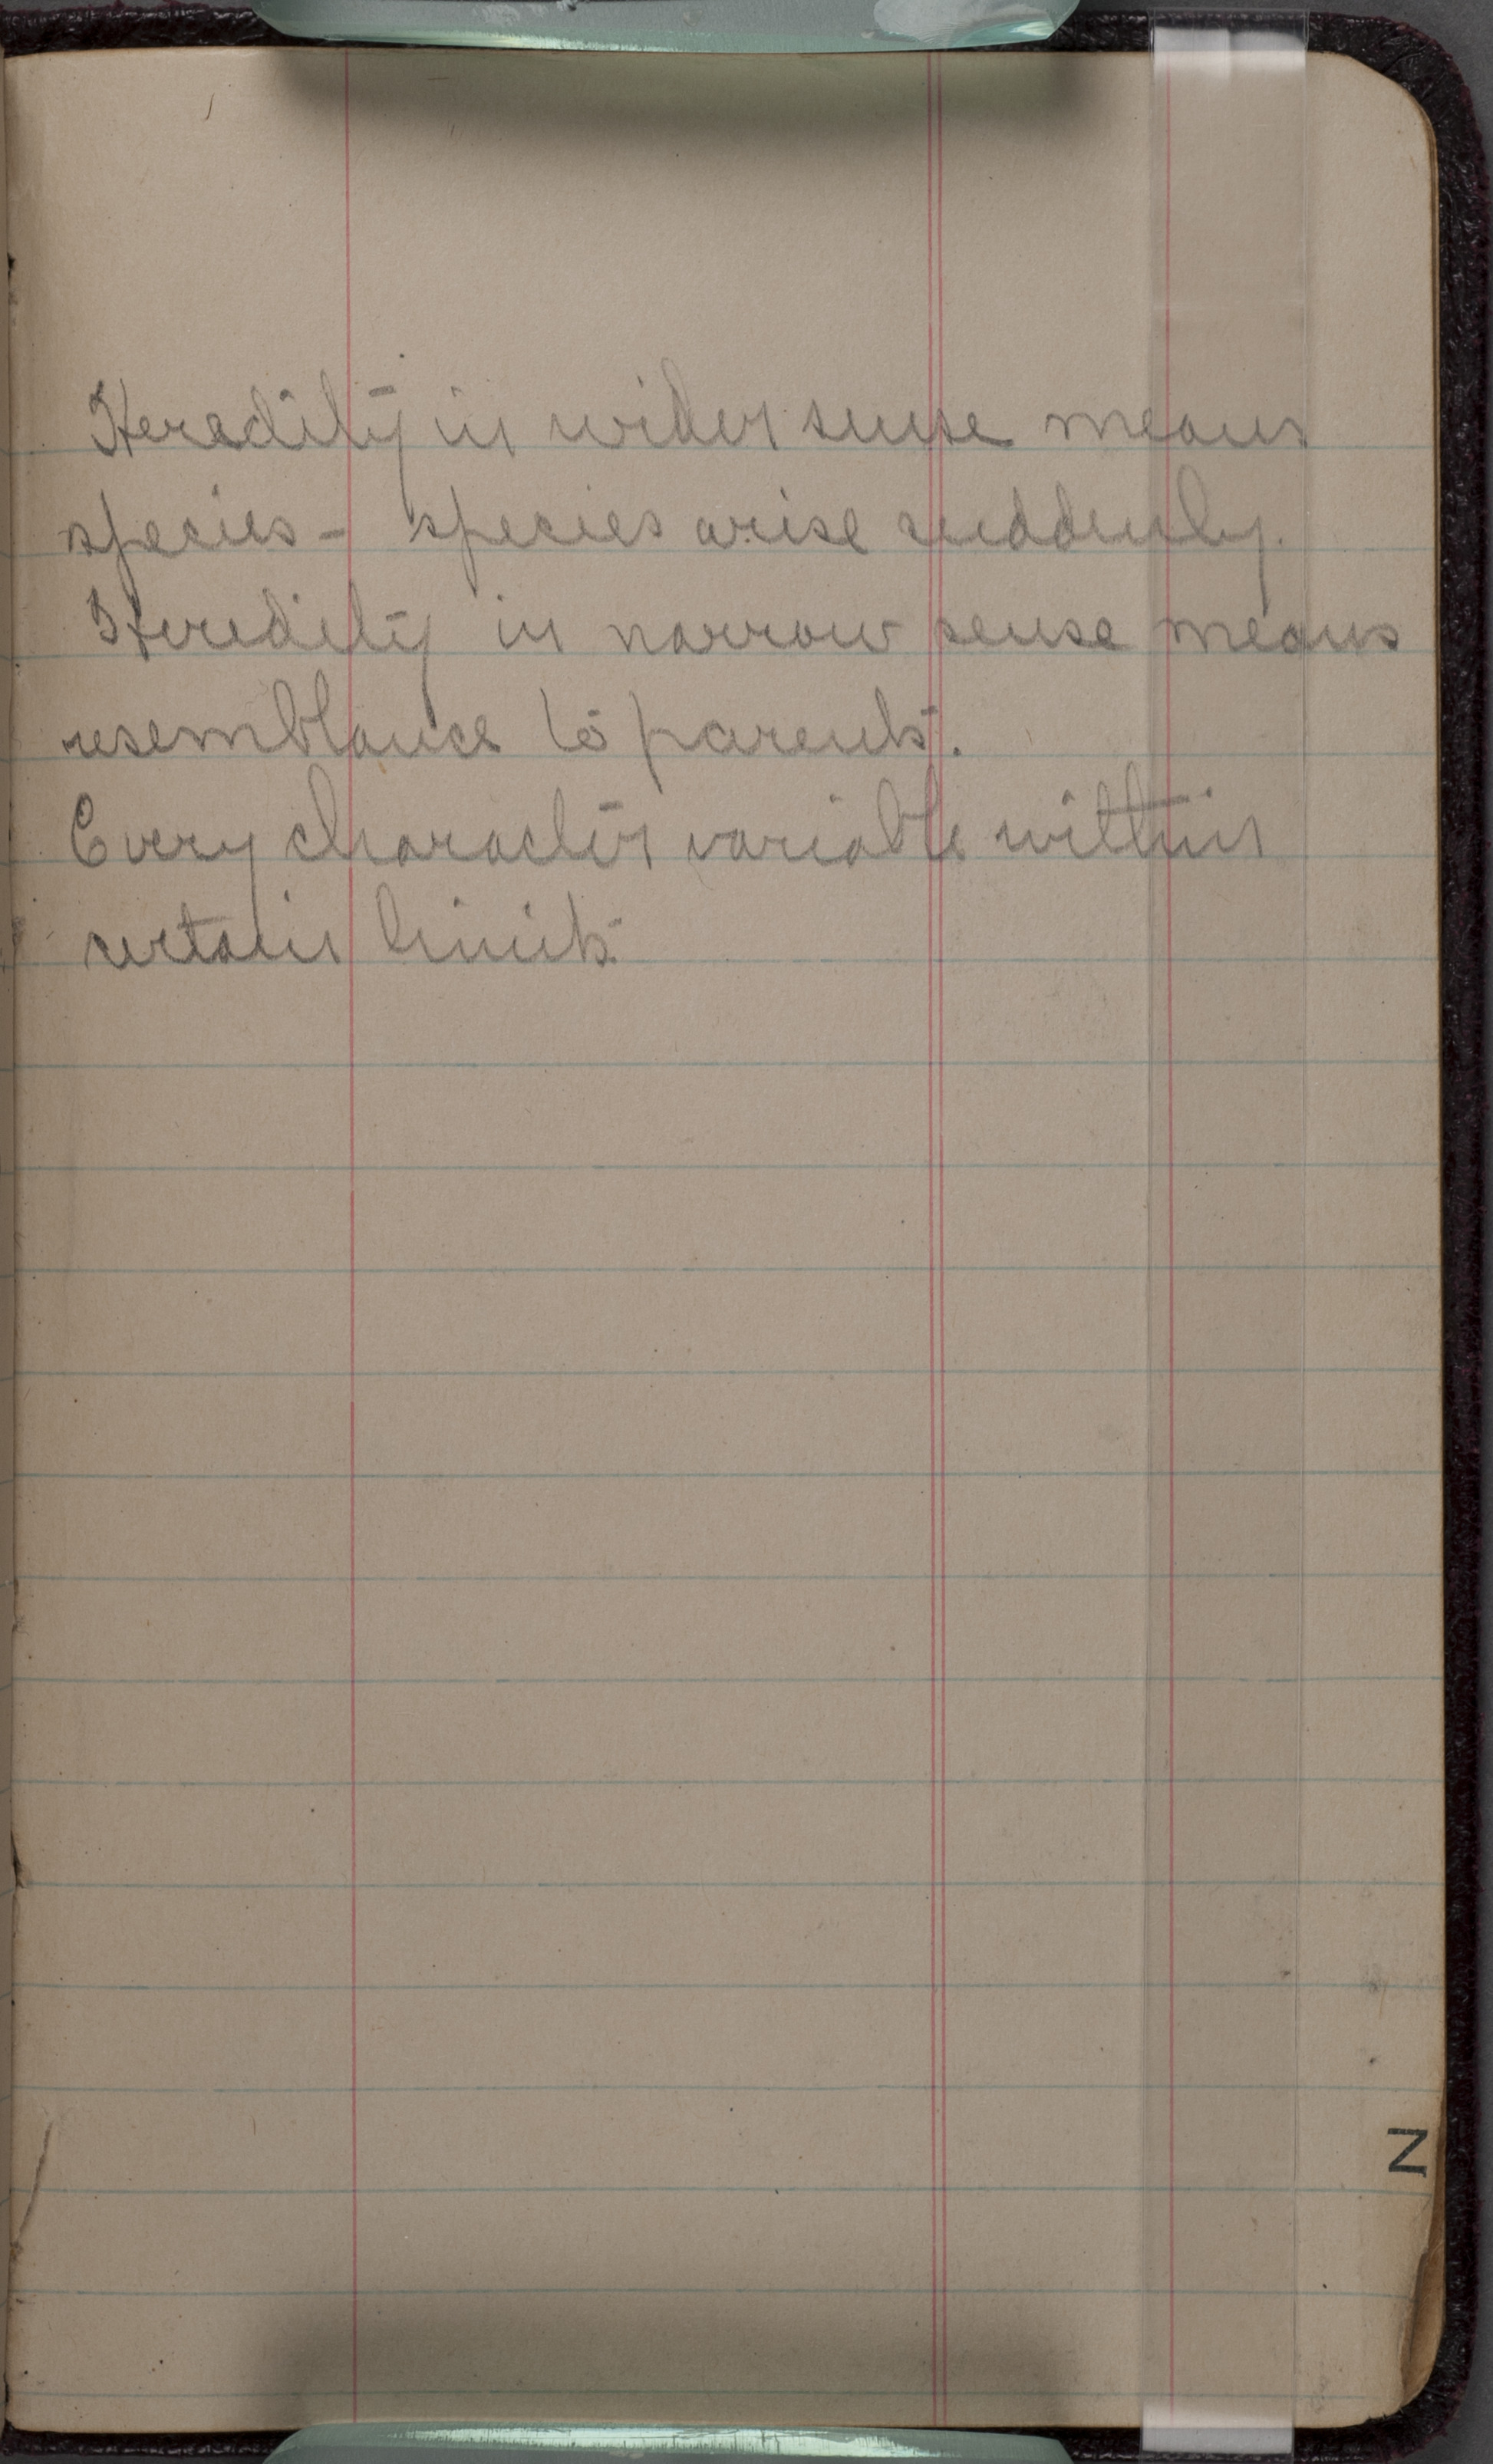 Heredity in wider sense means
species - species arise suddenly.
Heredity in narrow sense means
resemblance to parents.
Every character variable within
certain limits
N